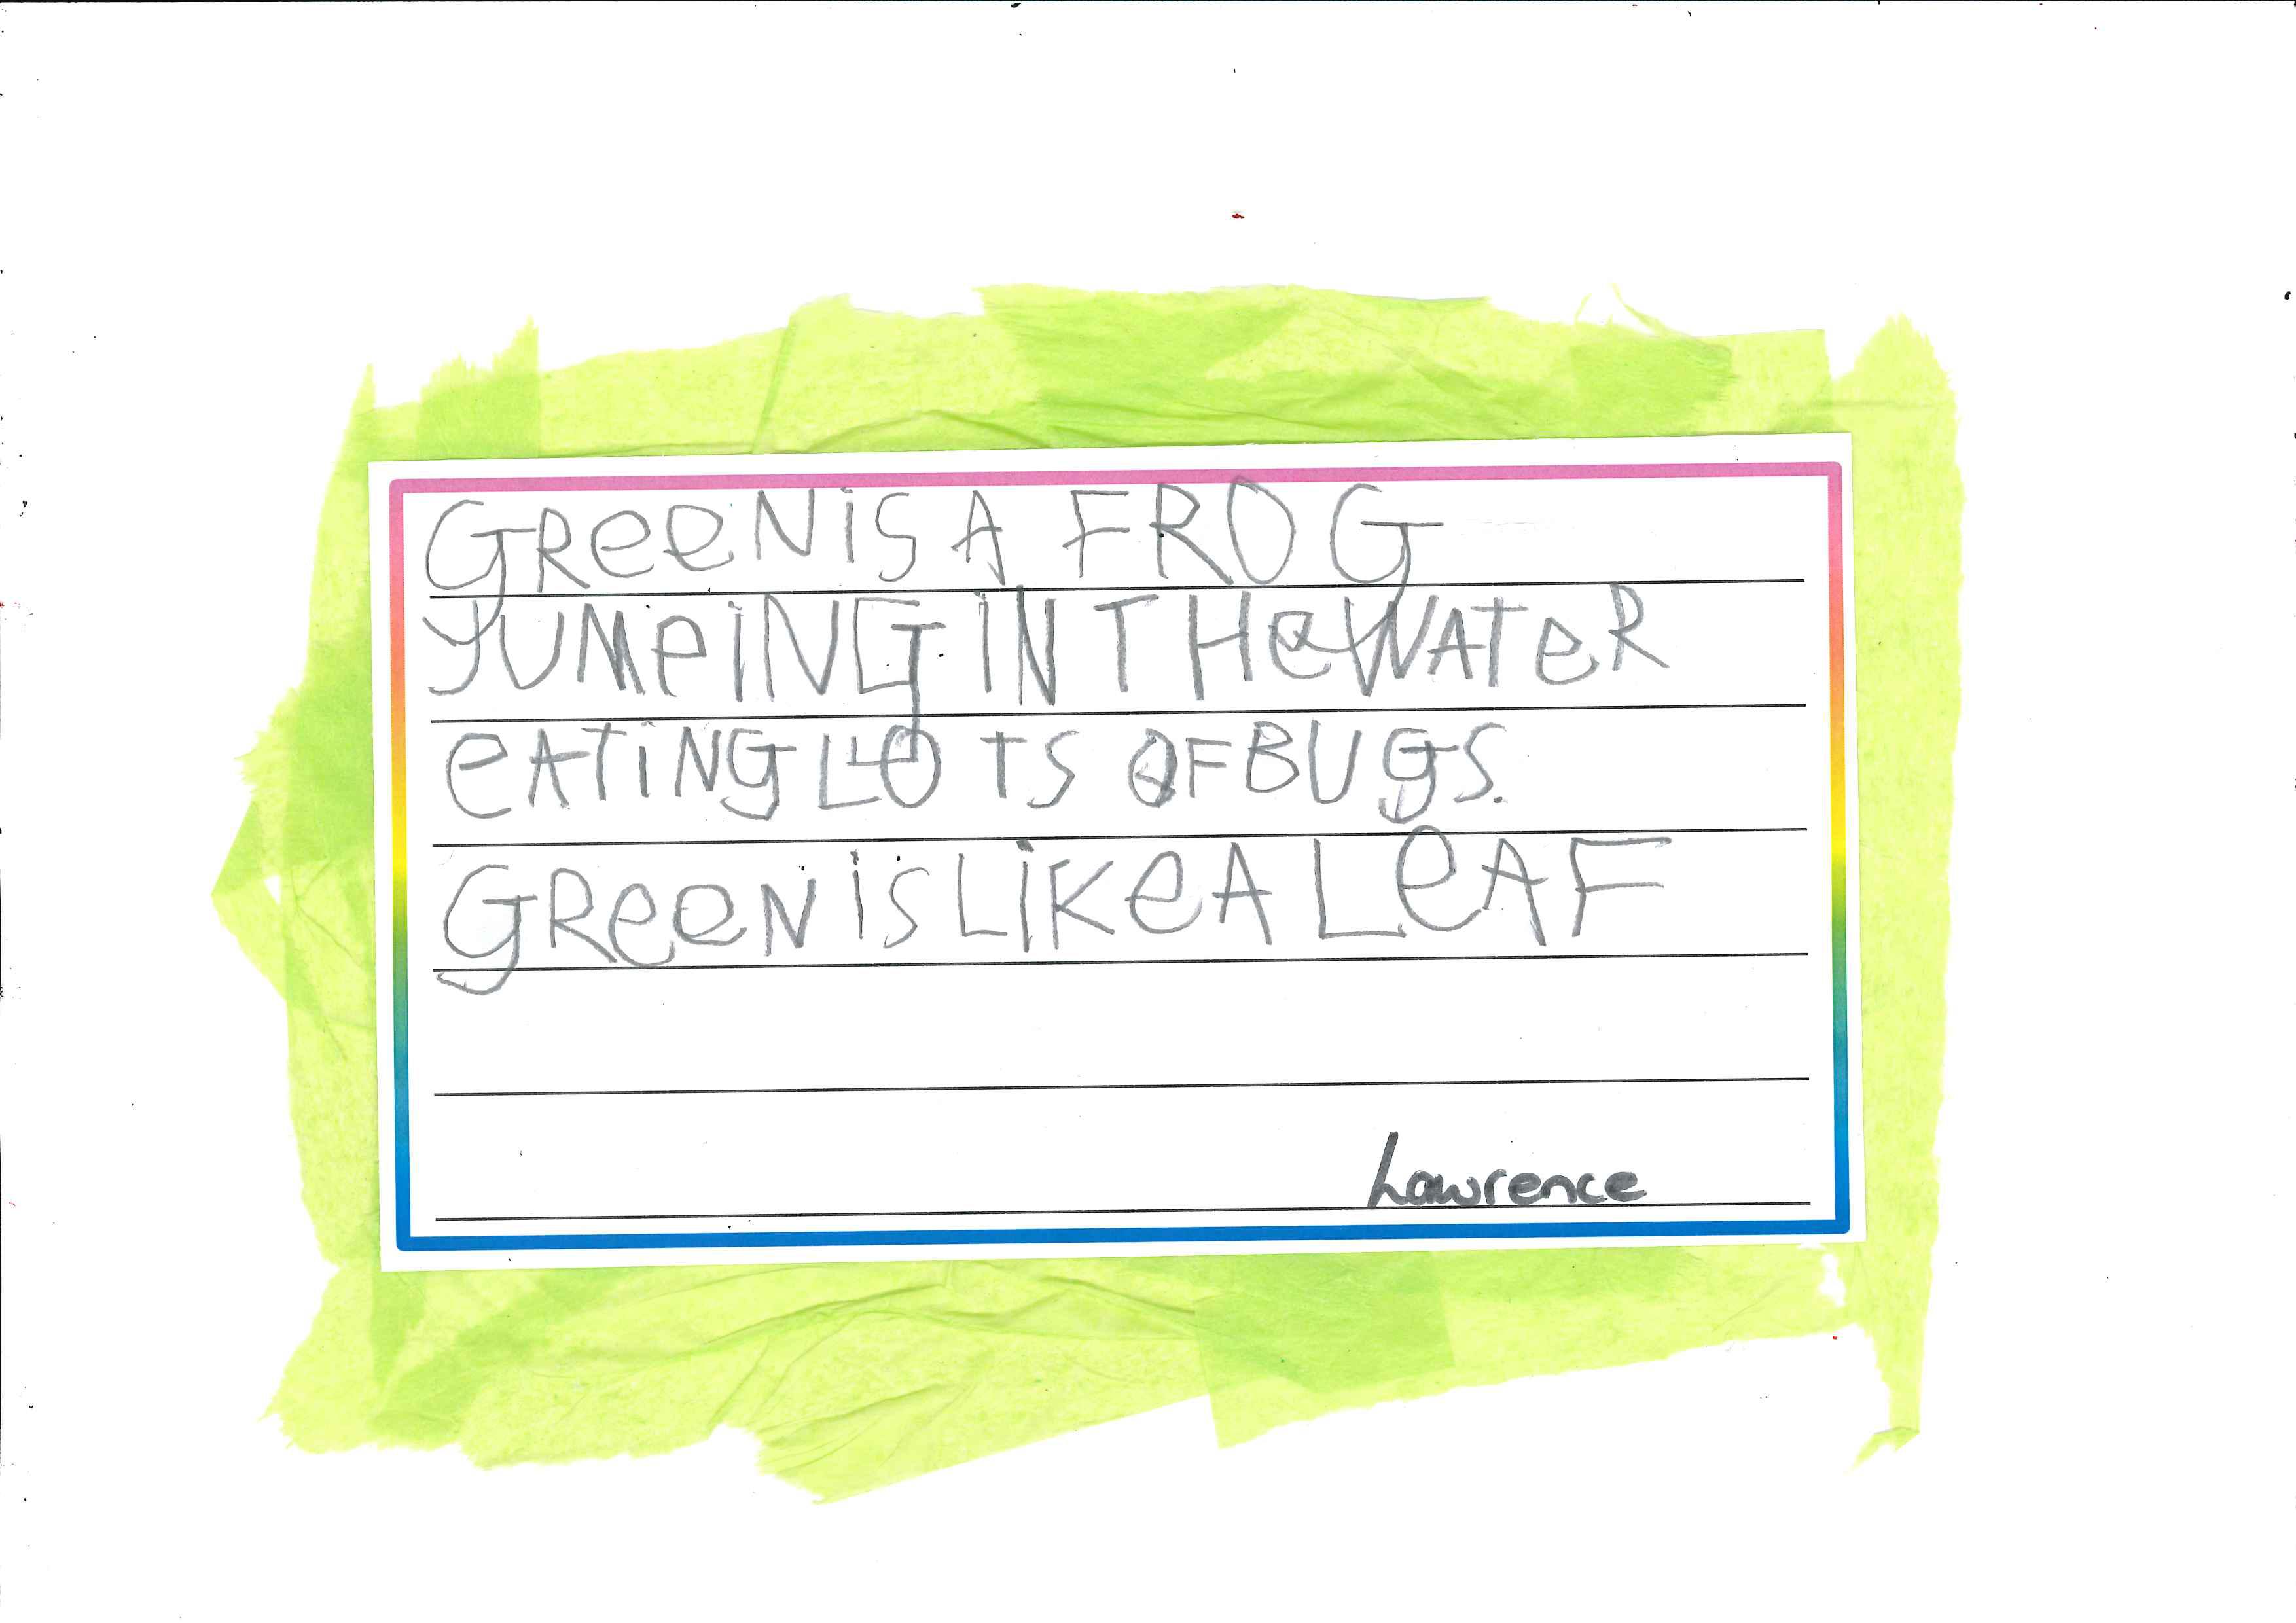 GReeN iS A FROG
JUMPiNG iN THe WATeR
eATiNG LOTS OF BUGS.
GReeN iS LiKe A LeAF
Lawrence